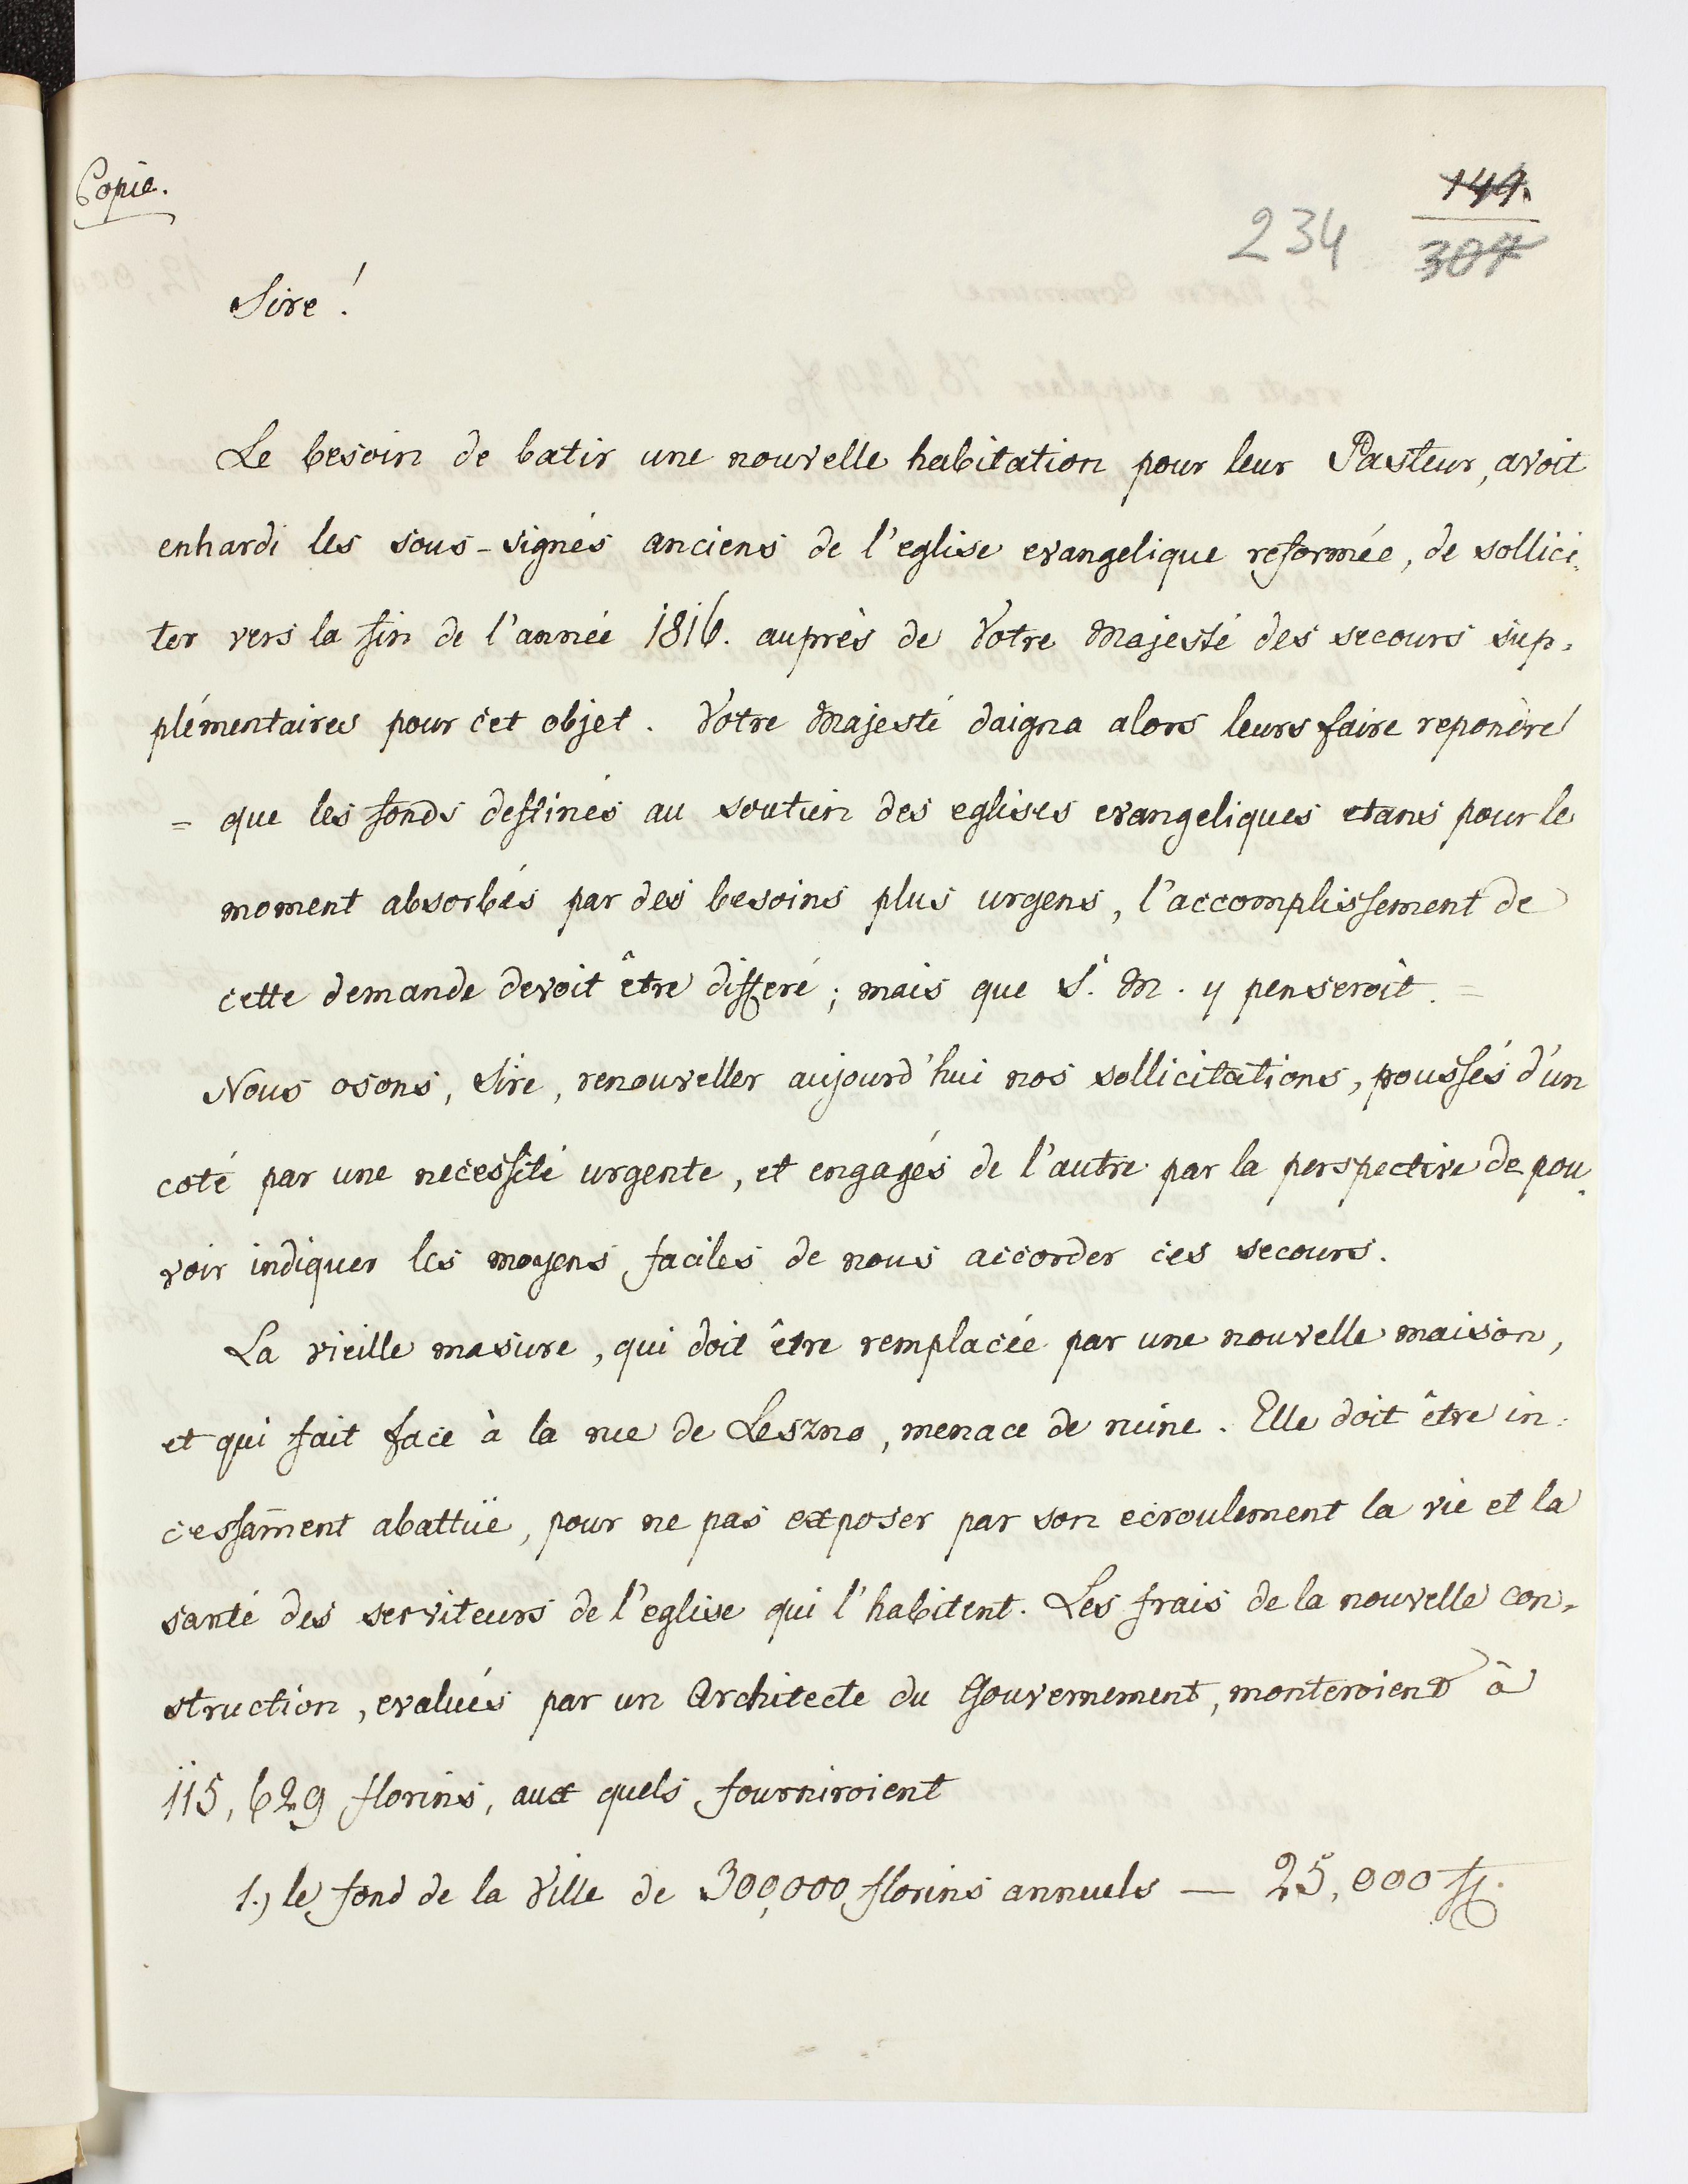 Copie.
149.
234
307
Sire!
Le besoin de batir une nouvelle habitation pour leur Pasteur, avoit
enhardi les sous-signés anciens de l'eglise evangelique reformée, de sollici-
ter vers la fin de l'année 1816. auprès de Votre Majesté des secours sup-
plémentaires pour cet objet. Votre Majesté daigna alors leurs faire repondre
= que les fonds destinés au soutien des eglises evangeliques etans pour le
moment absorbés par des besoins plus urgens, l'accomplissement de
cette demande devoit être differé; mais que S. M. y penseroit. =
Nous osons, Sire, renouveller aujourd'hui nos sollicitations, poussés d'un
coté par une necessité urgente, et engagés de l'autre par la perspective de pou-
voir indiquer les moyens faciles de nous accorder ces secours.
La vieille masure, qui doit être remplacée par une nouvelle maison,
et qui fait face à la rue de Leszno, menace de ruine. Elle doit être in-
cessam̄ent abattüe, pour ne pas exposer par son ecroulement la vie et la
santé des serviteurs de l'eglise qui l'habitent. Les frais de la nouvelle con-
struction, evalués par un Architecte du Gouvernement, monteroient à
115,629 florins, aux quels fourniroient
1.) le fond de la Ville de 300,000 florins annuels — 25,000 fl.